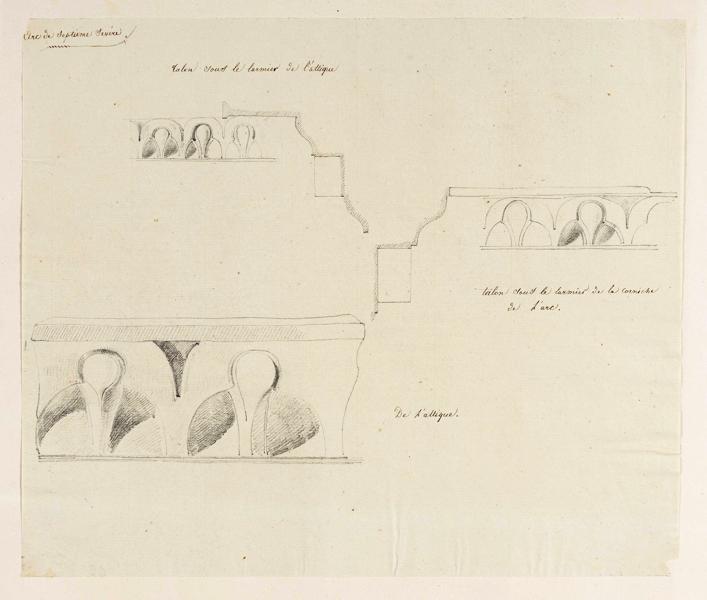 Arc de Septime Sévère
talon sous le larmier de l'attique
talon sous le larmier de la corniche
de l'arc.
De l'attique.